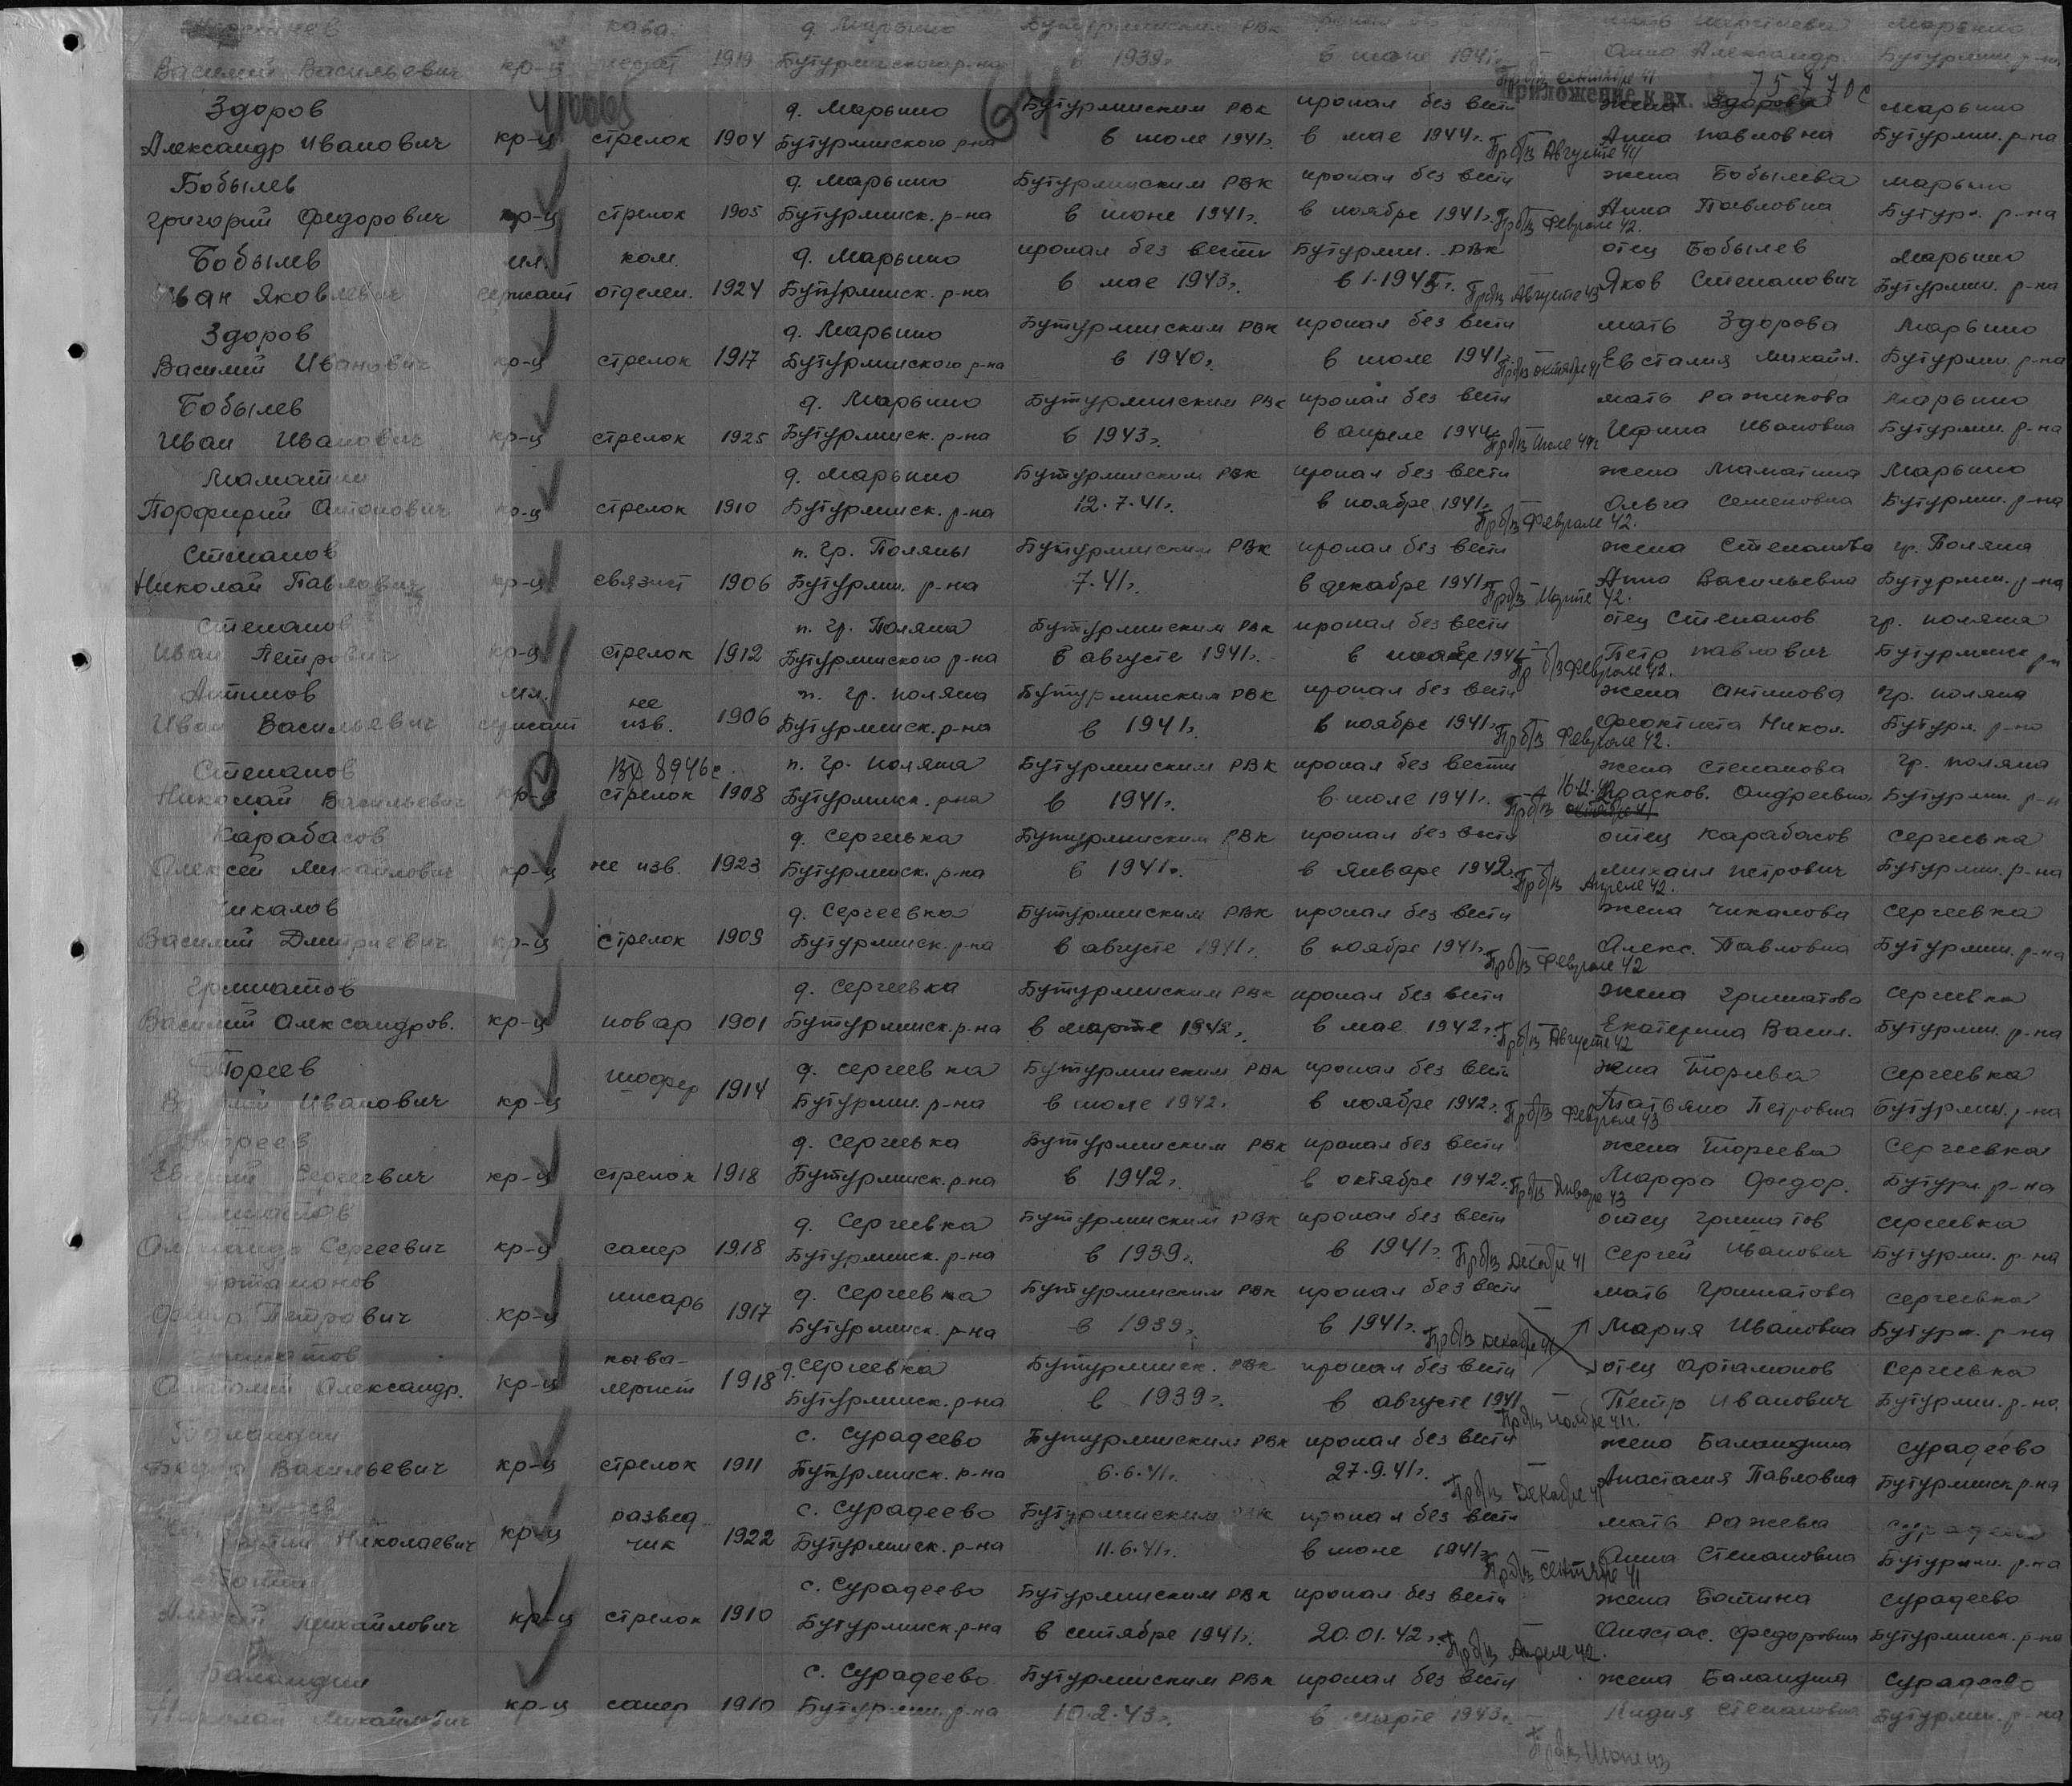 кава. д. Марьино Бутурлинским РВК Марьино
Василий Васильевич кр-ц 1919 Бутурлинского р-на в 1939г. в июне 1941г. Анна Александр. Бутурлин. р-на
Приложение к вх. 75770с
Здоров д. Марьино 64 Бутурлинским РВК пропал без вести жена Здорова Марьино
Александр Иванович кр-ц стрелок 1904 Бутурлинского р-на в июле 1941г. в мае 1944г. Анна Павловна Бутурлин. р-на
Пр б/в Августе 44
Бобылев д. Марьино Бутурлинским РВК пропал без вести жена Бобылева Марьино
Григорий Федорович кр-ц стрелок 1905 Бутурлинск. р-на в июне 1941г. в ноябре 1941г. Анна Павловна Бутурл. р-на
Пр б/в Феврале 42.
Бобылев мл. ком. д. Марьино пропал без вести Бутурлин. РВК отец Бобылев Марьино
Иван Яковлевич сержант отделен. 1924 Бутурлинск. р-на в мае 1943г. Яков Степанович Бутурлин. р-на
Пр б/в Августе 43
Здоров д. Марьино Бутурлинским РВК пропал без вести мать Здорова Марьино
Василий Иванович кр-ц стрелок 1917 Бутурлинского р-на в 1940г. в июле 1941г. Евсталия Михайл. Бутурлин. р-на
Пр б/в октябре 41
Бобылев д. Марьино Бутурлинским РВК пропал без вести мать Ражикова Марьино
Иван Иванович кр-ц стрелок 1925 Бутурлинск. р-на в 1943г. в апреле 1944г. Ивановна Бутурлин. р-на
Пр б/в Июле 44г
Маматин д. Марьино Бутурлинским РВК пропал без вести жена Маматина Марьино
Порфирий Антонович кр-ц стрелок 1910 Бутурлинск. р-на 12.7.41г. в ноябре 1941г. Ольга Семеновна Бутурлин. р-на
Пр б/в Феврале 42.
Степанов п. Гр. Поляны Бутурлинским РВК пропал без вести жена Степанова гр. Поляна
Николай Павлович кр-ц связист 1906 Бутурлин. р-на 7.41г. в декабре 1941г. Анна Васильевна Бутурлин. р-на
Пр б/в Марте 42.
Степанов п. Гр. Поляна Бутурлинским РВК пропал без вести отец Степанов гр. поляна
Иван Петрович кр-ц стрелок 1912 Бутурлинского р-на в августе 1941г. в ноябре 1941 Петр Павлович Бутурлинск р-н
Пр б/в Феврале 42.
Антипов мл. не п. гр. поляна Бутурлинским РВК пропал без вести жена Антипова гр. поляна
Иван Васильевич сержант изв. 1906 Бутурлинск. р-на в 1941г. в ноябре 1941г. Феоктиста Никол. Бутурл. р-на
Пр б/в Феврале 42.
Степанов вх 8946с. п. гр. поляна Бутурлинским РВК пропал без вести жена Степанова гр. поляна
Николай Васильевич кр-ц стрелок 1908 Бутурлинск. р-на в 1941г. в июле 1941г. Прасков. Андреевна Бутурлин. р-н
Пр б/в
Карабасов д. Сергеевка Бутурлинским РВК пропал без вести отец Карабасов Сергеевка
Алексей Михайлович кр-ц не изв. 1923 Бутурлинск. р-на в 1941г. в январе 1942г. Михаил Петрович Бутурлин. р-на
Пр б/в Апреле 42.
Чикалов д. Сергеевка Бутурлинским РВК пропал без вести жена Чикалова Сергеевка
Василий Дмитриевич кр-ц стрелок 1909 Бутурлинск. р-на в августе 1941г. в ноябре 1941г. Алекс. Павловна Бутурлин. р-на
Пр б/в Феврале 42
Гришатов д. Сергеевка Бутурлинским РВК пропал без вести жена Гришатова Сергеевка
Василий Александров. кр-ц повар 1901 Бутурлинск. р-на в марте 1942г. в мае 1942г. Екатерина Васил. Бутурлин. р-на
Пр б/в Августе 42
Тореев д. Сергеевка Бутурлинским РВК пропал без вести жена Тореева Сергеевка
Иванович кр-ц шофер 1914 Бутурлин. р-на в июле 1942г. в ноябре 1942г. Татьяна Петровна Бутурлин. р-на
Пр б/в Феврале 43
Тореев д. Сергеевка Бутурлинским РВК пропал без вести жена Тореева Сергеевка
Сергеевич кр-ц стрелок 1918 Бутурлинск. р-на в 1942г. в октябре 1942г. Марфа Федор. Бутурл. р-на
Пр б/в Январе 43
Гришатов д. Сергеевка Бутурлинским РВК пропал без вести отец Гришатов Сергеевка
Александр Сергеевич кр-ц сапер 1918 Бутурлинск. р-на в 1939г. в 1941г. Сергей Иванович Бутурлин. р-на
Пр б/в Декабре 41
Артамонов д. Сергеевка Бутурлинским РВК пропал без вести мать Гришатова Сергеевка
Петрович кр-ц писарь 1917 Бутурлинск. р-на в 1939г. в 1941г. Мария Ивановна Бутурл. р-на
Пр б/в декабре 41
Гришатов кава- д. Сергеевка Бутурлинск. РВК пропал без вести отец Артамонов Сергеевка
Анатолий Александр. кр-ц лерист 1918 Бутурлинск. р-на в 1939г. в августе 1941 Петр Иванович Бутурлин. р-на
Пр б/в ноябре 41г.
Баландин с. Сурадеево Бутурлинским РВК пропал без вести жена Баландина Сурадеево
Васильевич кр-ц стрелок 1911 Бутурлинск. р-на 6.6.41г. 27.9.41г. Анастасия Павловна Бутурлинск р-на
Пр б/в Декабре 41
развед с. Сурадеево Бутурлинским РВК пропал без вести мать Ражева Сурадеево
Николаевич кр-ц чик 1922 Бутурлинск. р-на 11.6.41г. в июне 1941г. Анна Степановна Бутурлин. р-на
Пр б/в сентябре 41
с. Сурадеево Бутурлинским РВК пропал без вести жена Ботина Сурадеево
Михайлович кр-ц стрелок 1910 Бутурлинск р-на в сентябре 1941г. 20.01.42г. Анастас. Федоровна Бутурлинск. р-на
Пр б/в Апреле 42.
Баландин с. Сурадеево Бутурлинским РВК пропал без вести жена Баландина Сурадеево
Николай Михайлович кр-ц сапер 1910 Бутурлин. р-на 10.2.43г. в марте 1943г. Лидия Степановна Бутурлин. р-на
Пр б/в